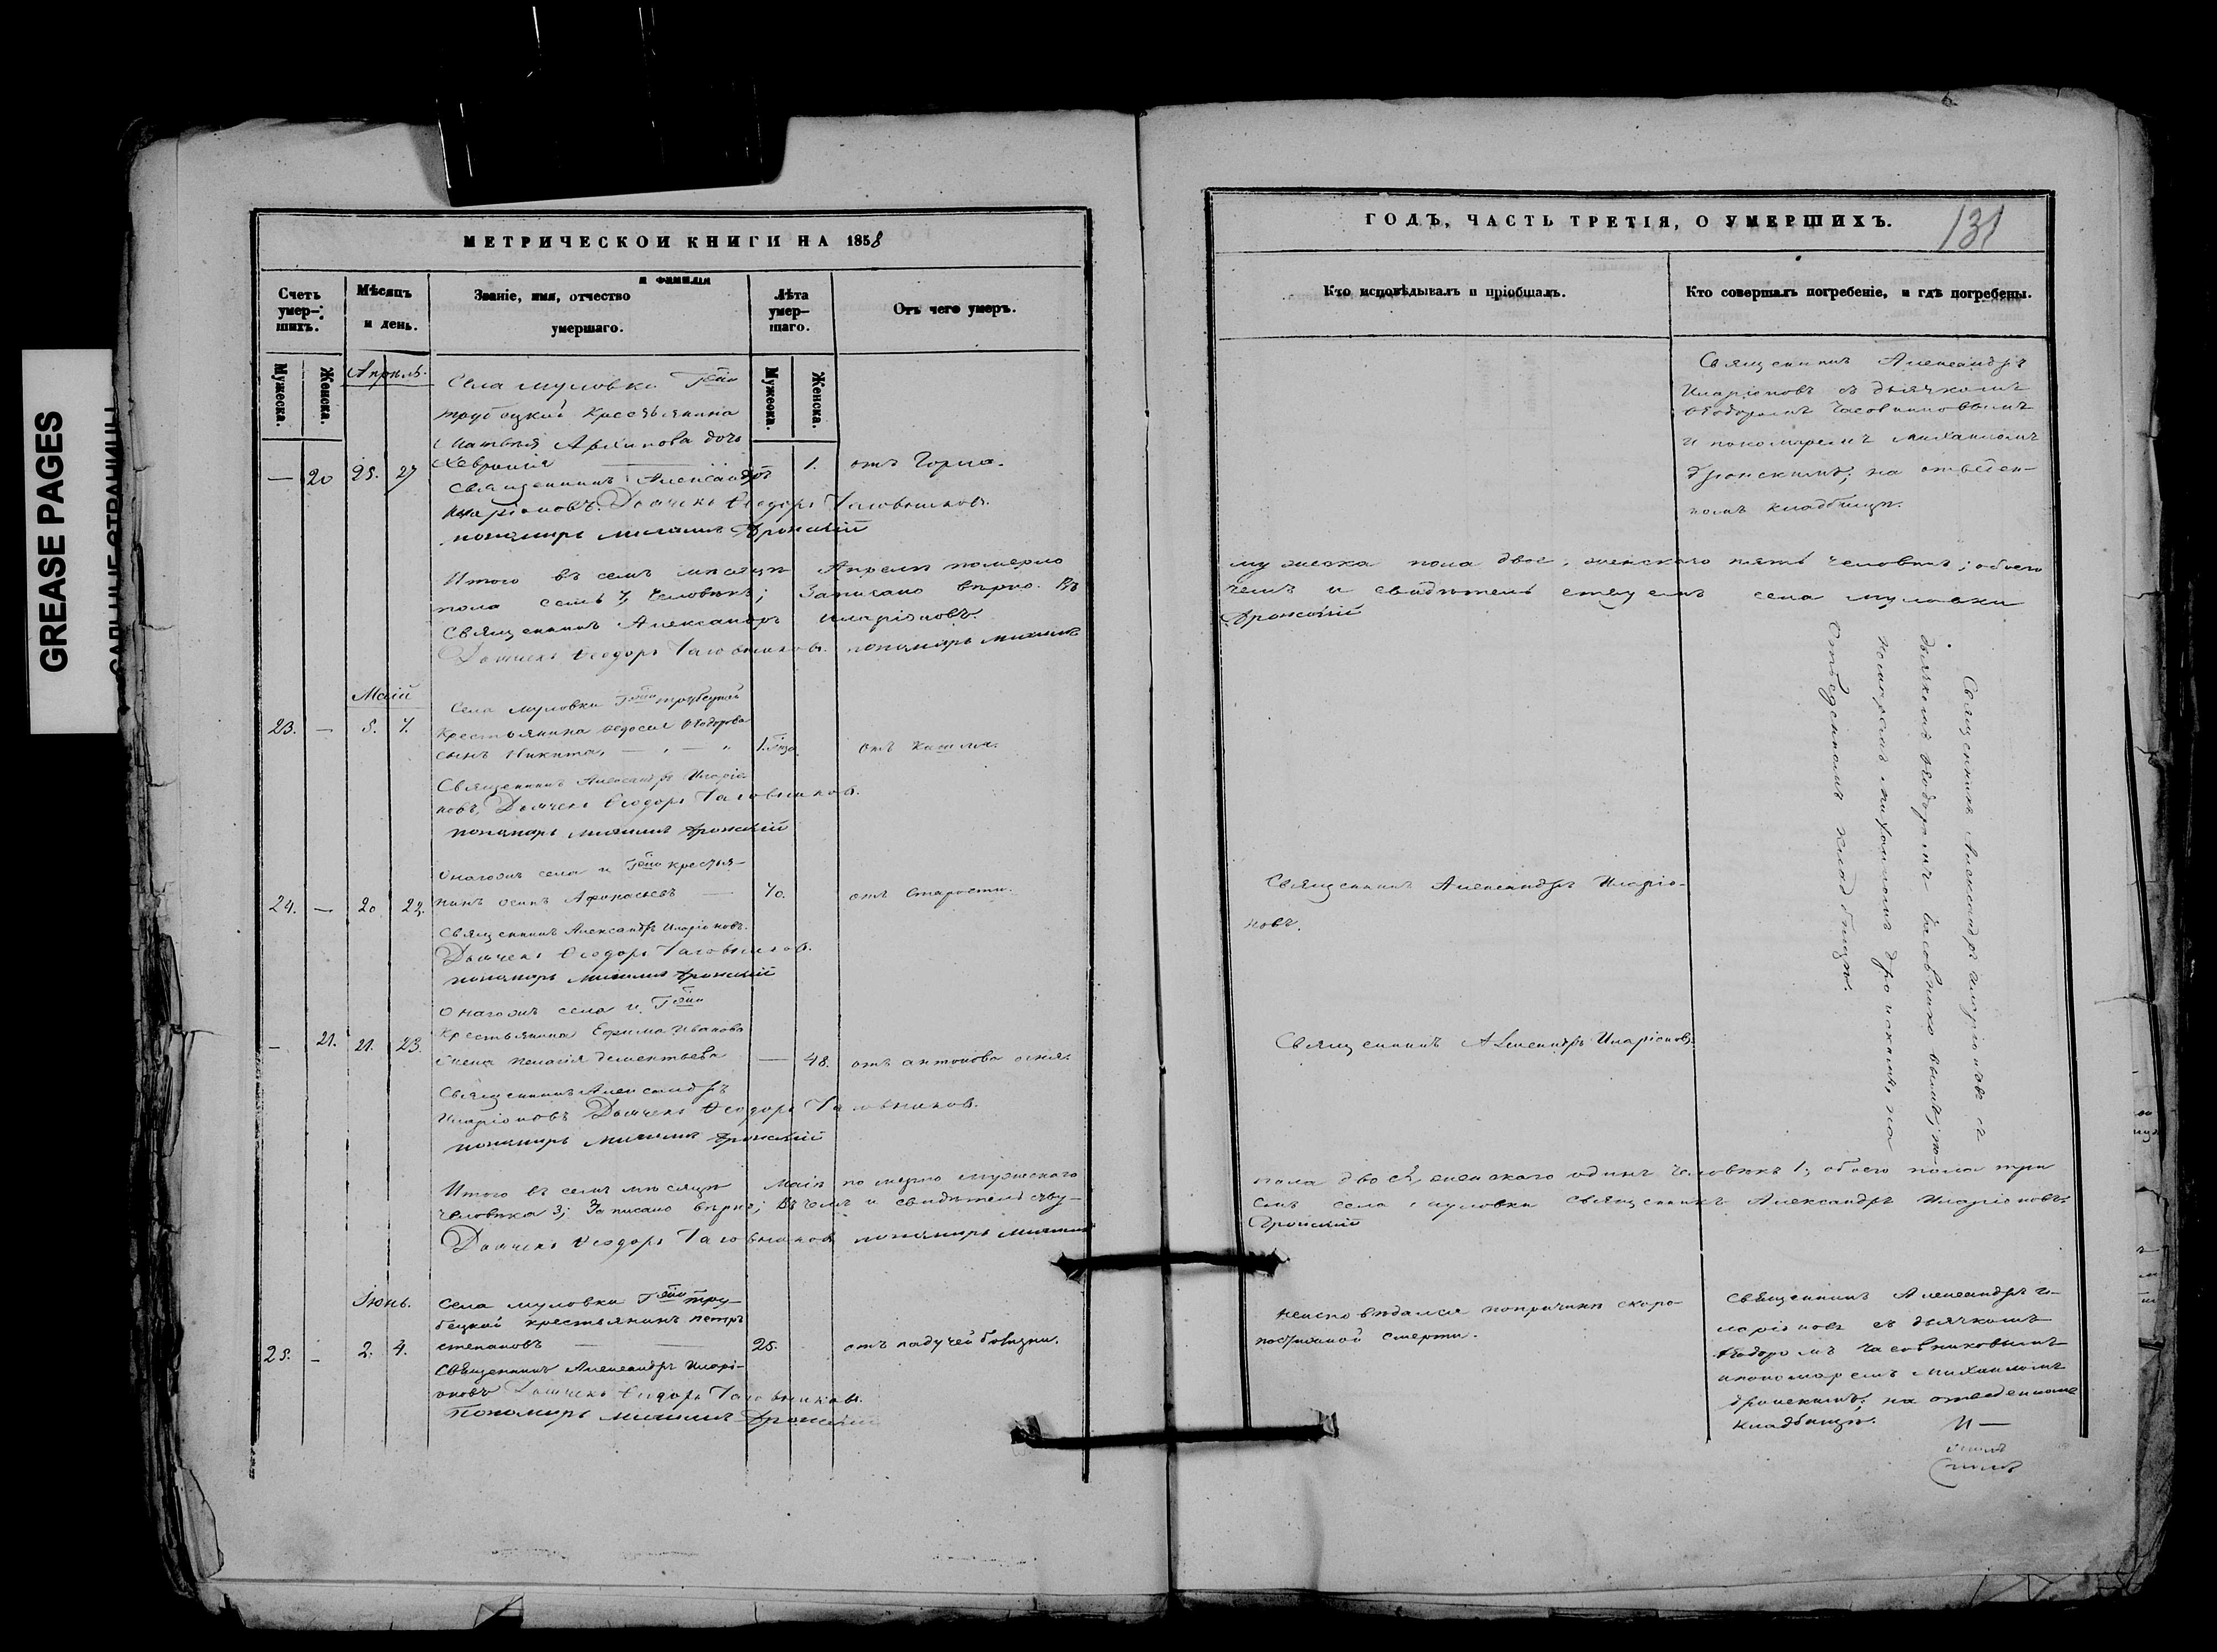 GREASE PAGES
МЕТРИЧЕСКОЙ КНИГИ НА 1858
Счетъ умер-шихъ.
Мѣсяцъ и день.
Званіе, имя, отчество и фамилія умершаго.
Лѣта умер-шаго.
Отъ чего умеръ.
Мужеска.
Женска.
Мужеска.
Женска.
Апрѣль.
Села Муловки
трубецкой Крестьянина
Матвѣя Архипова дочь
— 20 25. 27 Хевронія — 1. отъ Горла.
Священникъ Александръ
Иларіоновъ. Дьячекъ Ѳеодоръ Часовниковъ.
пономарь Михаилъ Дронскій
Итого въ семъ мѣсяцѣ Апрелѣ померло
пола семь 7, Человѣкъ; Записано вѣрно. Въ
Священникъ Александръ Иларіоновъ.
Дьячекъ Ѳеодоръ Часовниковъ. пономарь Михаилъ
Маій
Села Муловки трубецкой
23. — 5. 7. Крестьянина Ѳедосея Ѳеодорова
сынъ Никита, — 1. отъ кашля.
Священникъ Александръ Иларіо-
новъ, Дьячекъ Ѳеодоръ Часовниковъ.
пономарь Михаилъ Дронскій
Онагожъ села и крестья-
24. — 20 22. нинъ Осипъ Афанасьевъ — 70. отъ Старости.
Священникъ Александръ Иларіоновъ.
Дьячекъ Ѳеодоръ Часовниковъ.
пономарь Михаилъ Дронскій
Онагожъ села и
— 21. 21. 23. Крестьянина Ефима Иванова
жена Пелагія Дементьева — 48. отъ антонова огня.
Священникъ Александръ
Иларіоновъ Дьячекъ Ѳеодоръ Часовниковъ.
пономарь Михаилъ Дронскій
Итого въ семъ мѣсяцѣ Маіѣ померло мужескаго
человѣка 3; Записано вѣрно; Въ чемъ и свидѣтельству-
Дьячекъ Ѳеодоръ Часовниковъ пономарь Михаилъ
Іюнь.
Села Муловки тру-
бецкой крестьянинъ петръ
25. — 2. 4. степановъ — 25. отъ падучей болѣзни.
Священникъ Александръ Иларі-
оновъ Дьячекъ Ѳеодоръ Часовниковъ.
Пономарь Михаилъ Дронскій
ГОДЪ, ЧАСТЬ ТРЕТІЯ, О УМЕРШИХЪ.
131
Кто исповѣдывалъ и пріобщалъ.
Кто совершалъ погребеніе, и гдѣ погребены.
Священникъ Александръ
Иларіоновъ съ дьячкомъ
Ѳеодоромъ Часовниковымъ
и пономаремъ Михаиломъ
Дронскимъ; на отведен-
номъ кладбищѣ.
мужеска пола двое, женскаго пять человѣкъ; обоего
чемъ и свидѣтельствуемъ села Муловки
Дронскій
Священникъ Александръ Иларіоновъ съ
дьячкомъ Ѳеодоромъ Часовниковымъ, по-
номаремъ Михаиломъ Дронскимъ, на
Отведенномъ кладбищѣ.
Священникъ Александръ Иларіо-
новъ.
Священникъ Александръ Иларіоновъ.
пола двое 2, женскаго одинъ человѣкъ 1; обоего пола три
емъ села Муловки Священникъ Александръ Иларіоновъ
Дронскій
неисповѣдался по причинѣ скоро-
постижной смерти.
Священникъ Александръ И-
ларіоновъ съ дьячкомъ
Ѳеодоромъ Часовниковымъ
и пономаремъ Михаиломъ
Дронскимъ; на отведенномъ
Кладбищѣ.